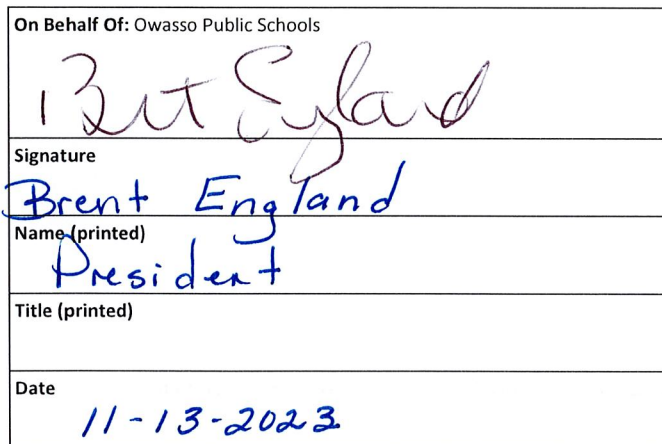 On Behalf Of: Owasso Public Schools
Brent England
Signature
Brent England
Name (printed)
President
Title (printed)
Date
11-13-2023